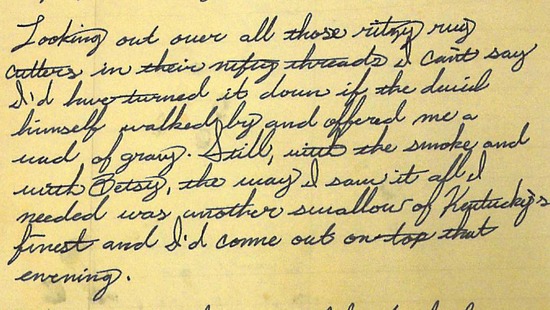 Looking out over all those ritzy rug
cutters in their nifty threads I can't say
I'd have turned it down if the devil
himself walked by and offered me a
wad of gravy. Still, with the smoke and
with Betsy, the way I saw it all I
needed was another swallow of Kentucky's
finest and I'd come out on top that
evening.